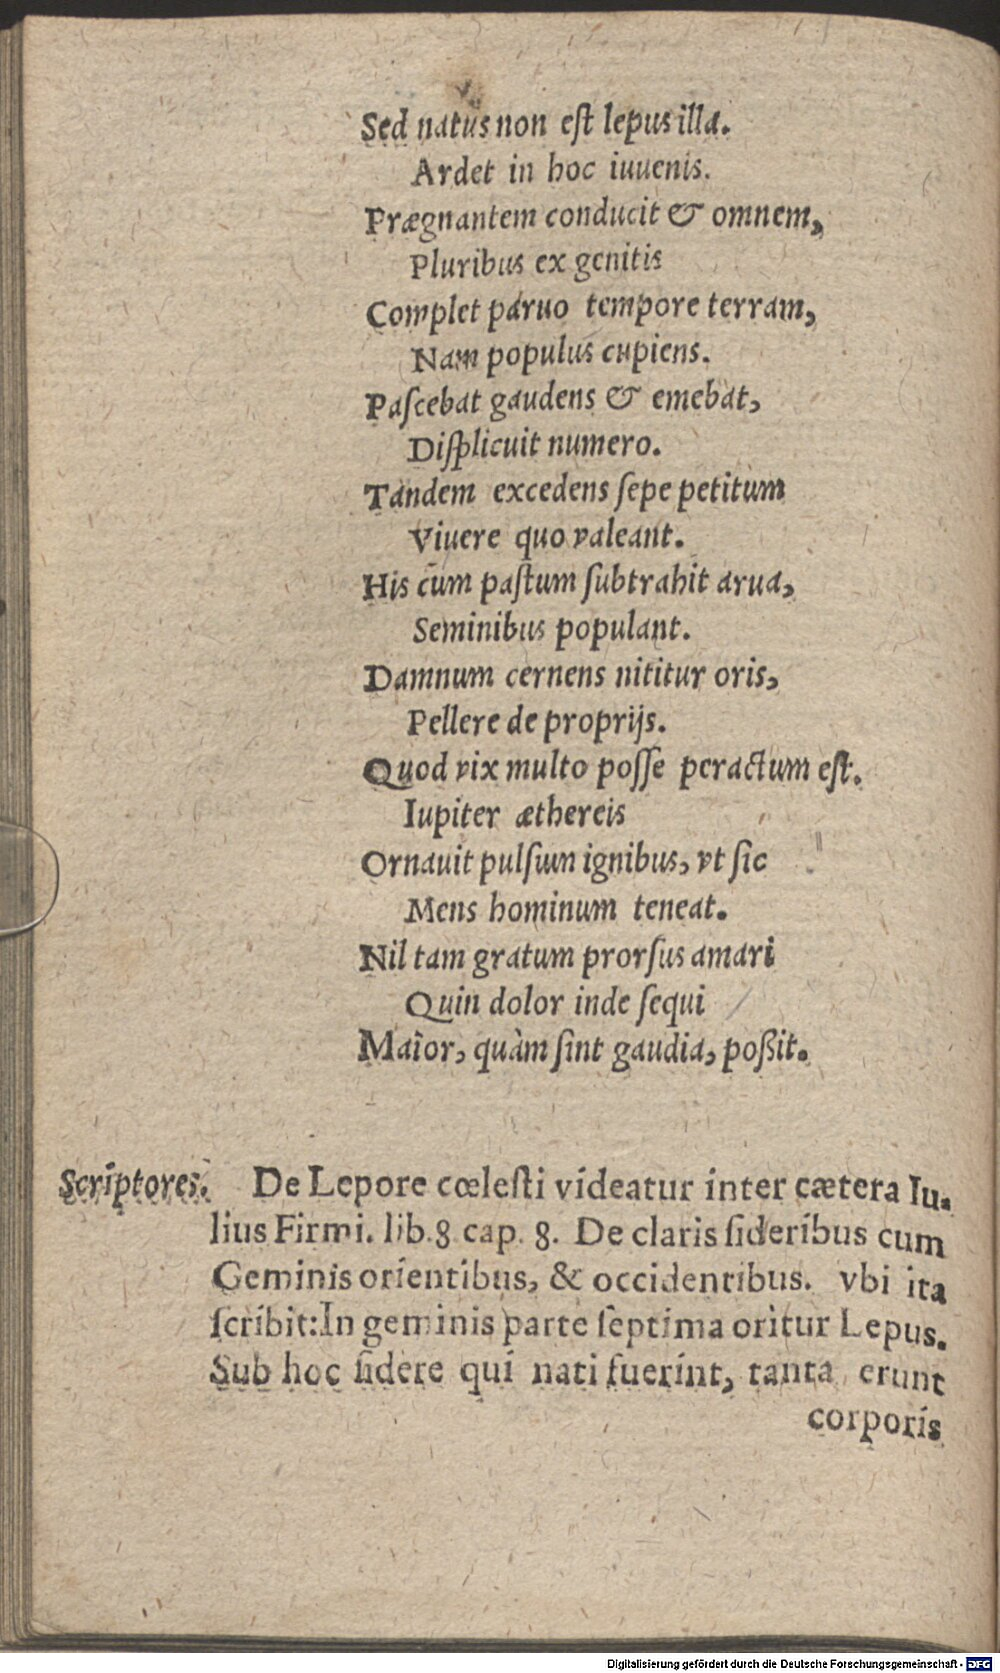 Sed natus non est lepus illa.
Ardet in hoc iuuenis.
Prægnantem conducit & omnem,
Pluribus ex genitis
Complet paruo tempore terram,
Nam populus cupiens.
Pascebat gaudens & emebat,
Displicuit numero.
Tandem excedens sepe petitum
Viuere quo valeant.
His cum pastum subtrahit arua,
Seminibus populant.
Damnum cernens nititur oris,
Pellere de proprijs.
Quod vix multo posse peractum est.
Iupiter æthereis
Ornauit pulsum ignibus, vt sic
Mens hominum teneat.
Nil tam gratum prorsus amari
Quin dolor inde sequi
Maior, quàm sint gaudia, poßit.
Scriptores. De Lepore cœlesti videatur inter cætera Iu-
lius Firmi. lib.8 cap. 8. De claris sideribus cum
Geminis orientibus, & occidentibus. vbi ita
scribit: In geminis parte septima oritur Lepus.
Sub hoc sidere qui nati fuerint, tanta erunt
corporis
Digitalisierung gefördert durch die Deutsche Forschungsgemeinschaft - DFG